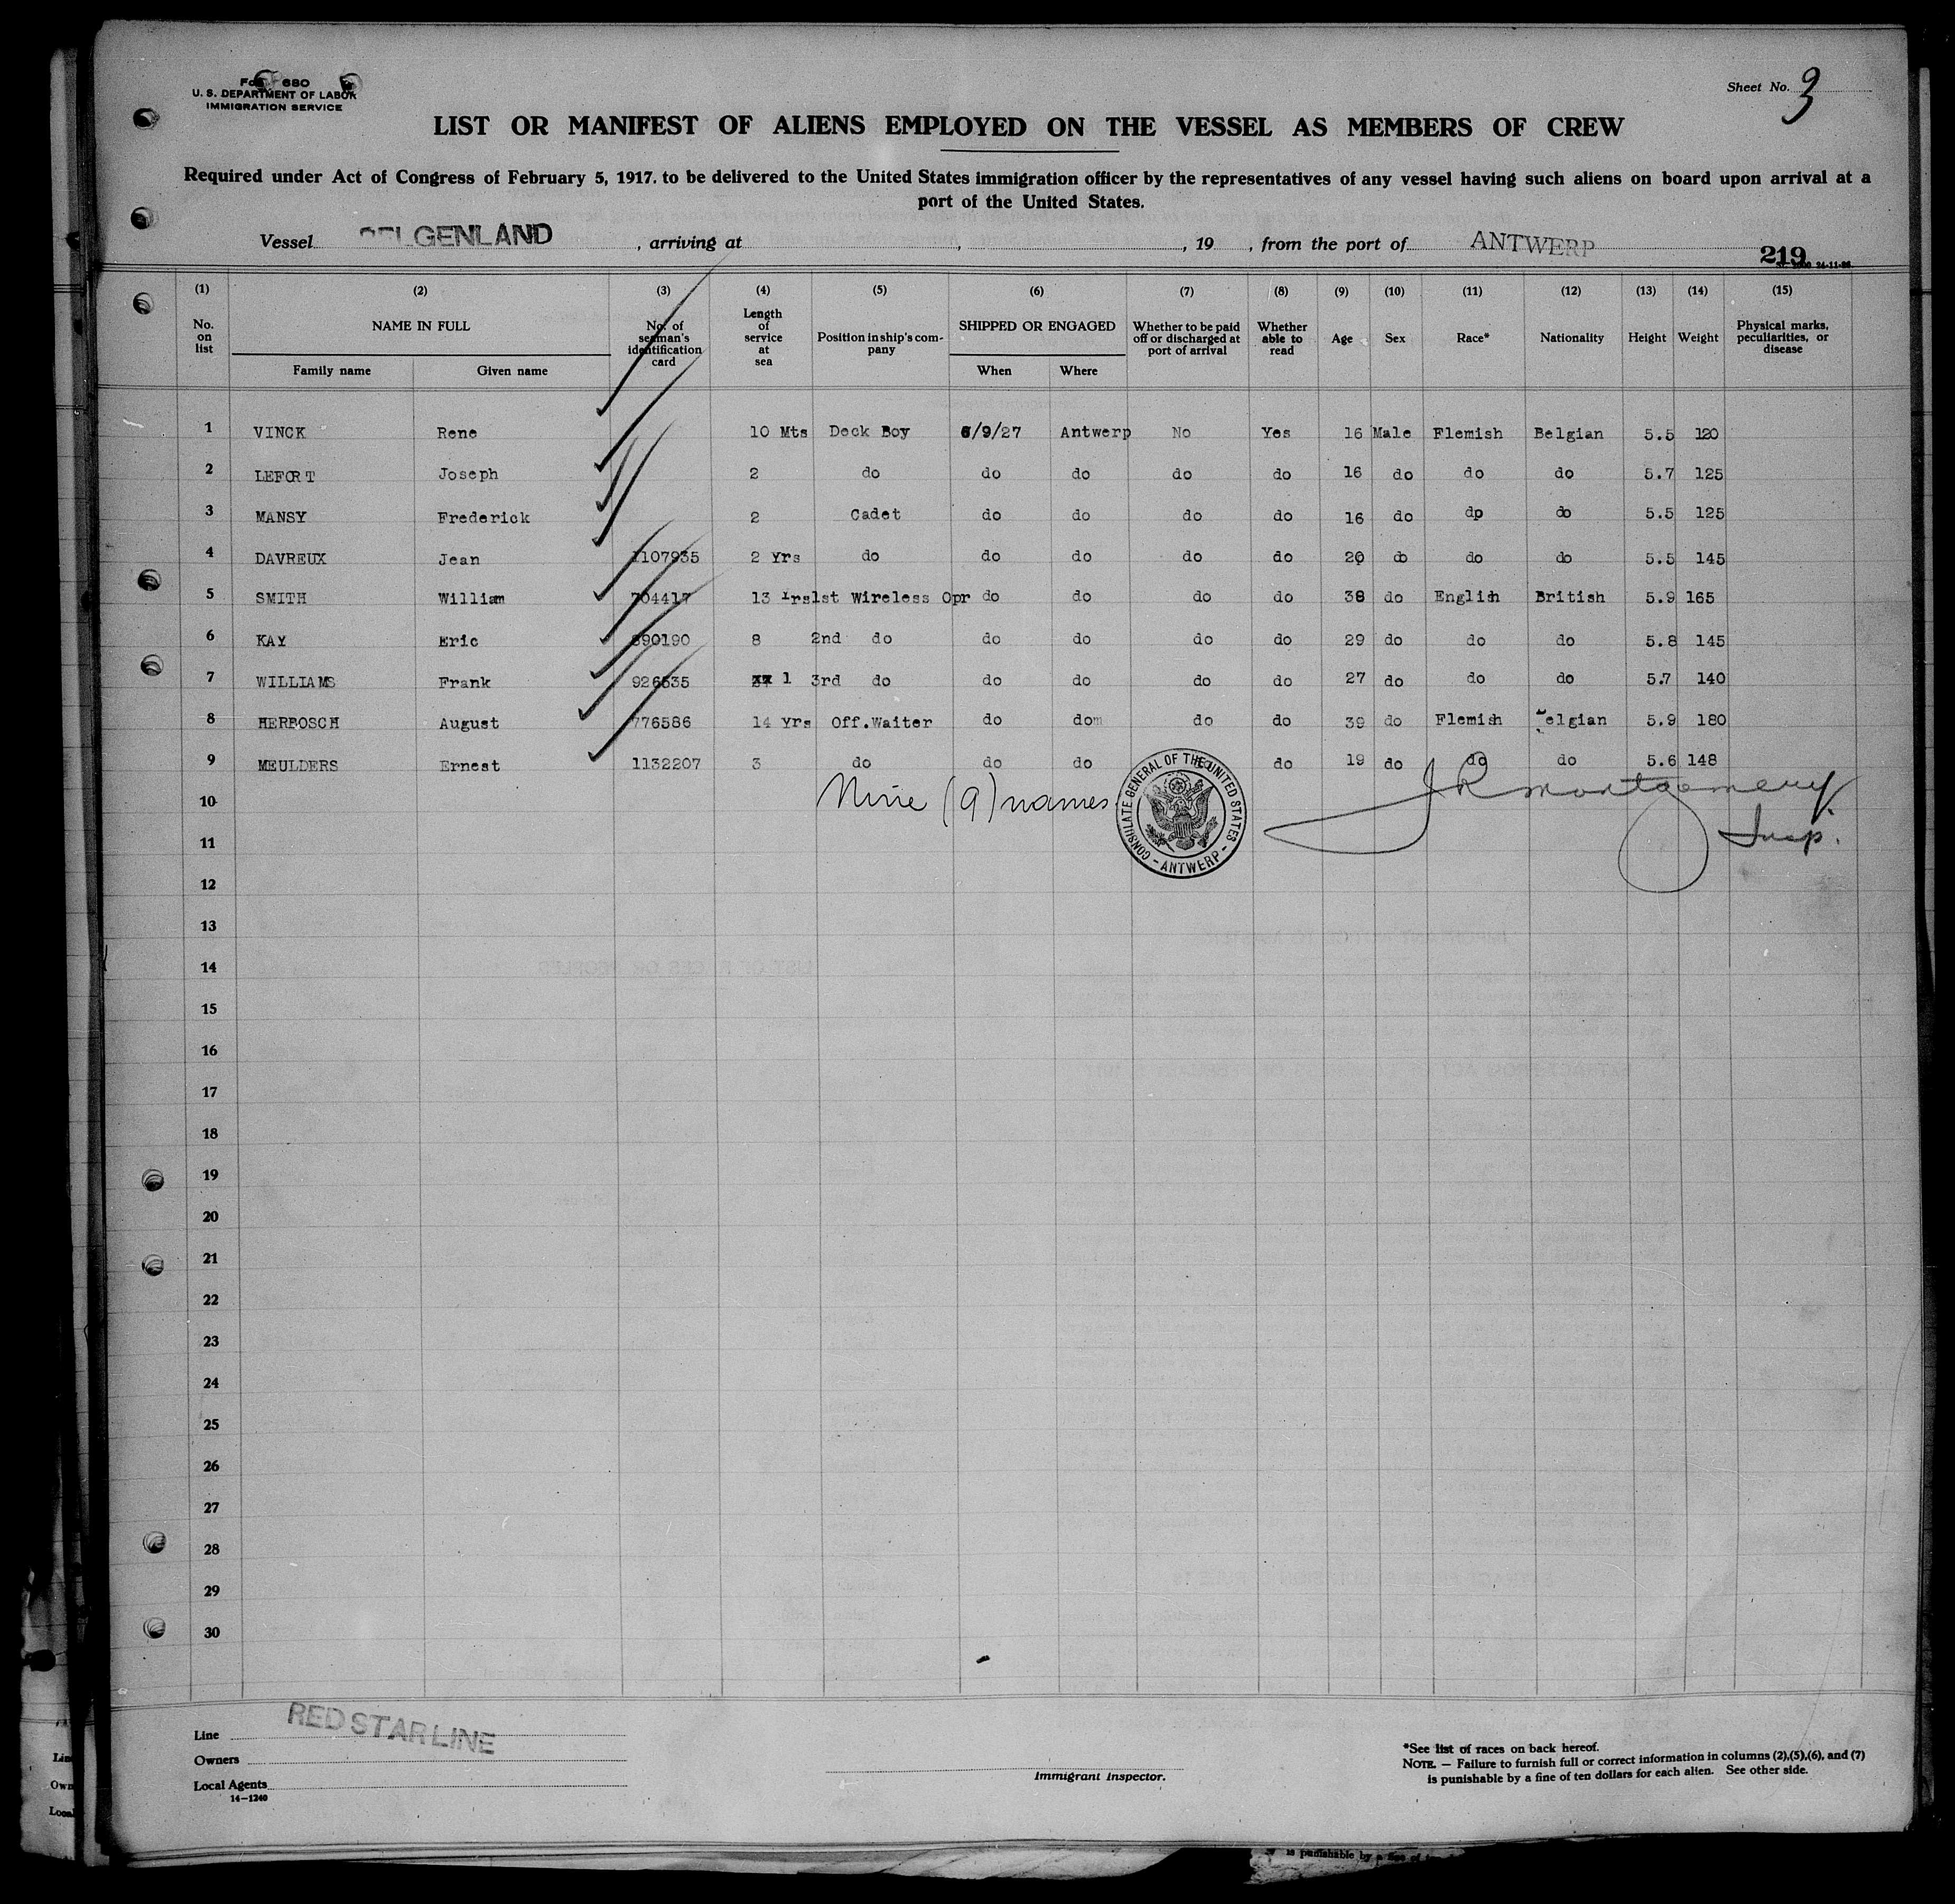 Form 680
U. S. DEPARTMENT OF LABOR
IMMIGRATION SERVICE
Sheet No. 3
LIST OR MANIFEST OF ALIENS EMPLOYED ON THE VESSEL AS MEMBERS OF CREW
Required under Act of Congress of February 5, 1917. to be delivered to the United States immigration officer by the representatives of any vessel having such aliens on board upon arrival at a
port of the United States.
Vessel BELGENLAND , arriving at , , 19 , from the port of ANTWERP
219
(1) (2) (3) (4) (5) (6) (7) (8) (9) (10) (11) (12) (13) (14) (15)
No. on list NAME IN FULL Family name Given name No. of seaman's identification card Length of service at sea Position in ship's company SHIPPED OR ENGAGED When Where Whether to be paid off or discharged at port of arrival Whether able to read Age Sex Race* Nationality Height Weight Physical marks, peculiarities, or disease
1 VINCK Rene 10 Mts Deck Boy 6/9/27 Antwerp No Yes 16 Male Flemish Belgian 5.5 120
2 LEFORT Joseph 2 do do do do do 16 do do do 5.7 125
3 MANSY Frederick 2 Cadet do do do do 16 do dp do 5.5 125
4 DAVREUX Jean 1107935 2 Yrs do do do do do 20 do do do 5.5 145
5 SMITH William 704417 13 Yrs 1st Wireless Opr do do do do 38 do English British 5.9 165
6 KAY Eric 890190 8 2nd do do do do do 29 do do do 5.8 145
7 WILLIAMS Frank 926535 1 3rd do do do do do 27 do do do 5.7 140
8 HERBOSCH August 776586 14 yrs Off.Waiter do dom do do 39 do Flemish Belgian 5.9 180
9 MEULDERS Ernest 1132207 3 do do do do do 19 do do do 5.6 148
Nine (9) names
CONSULATE GENERAL OF THE UNITED STATES - ANTWERP -
J R Montgomery
Insp.
10
11
12
13
14
15
16
17
18
19
20
21
22
23
24
25
26
27
28
29
30
Line RED STAR LINE
Owners
Local Agents
14-1240
Immigrant Inspector.
*See list of races on back hereof.
NOTE. — Failure to furnish full or correct information in columns (2),(5),(6), and (7)
is punishable by a fine of ten dollars for each alien. See other side.